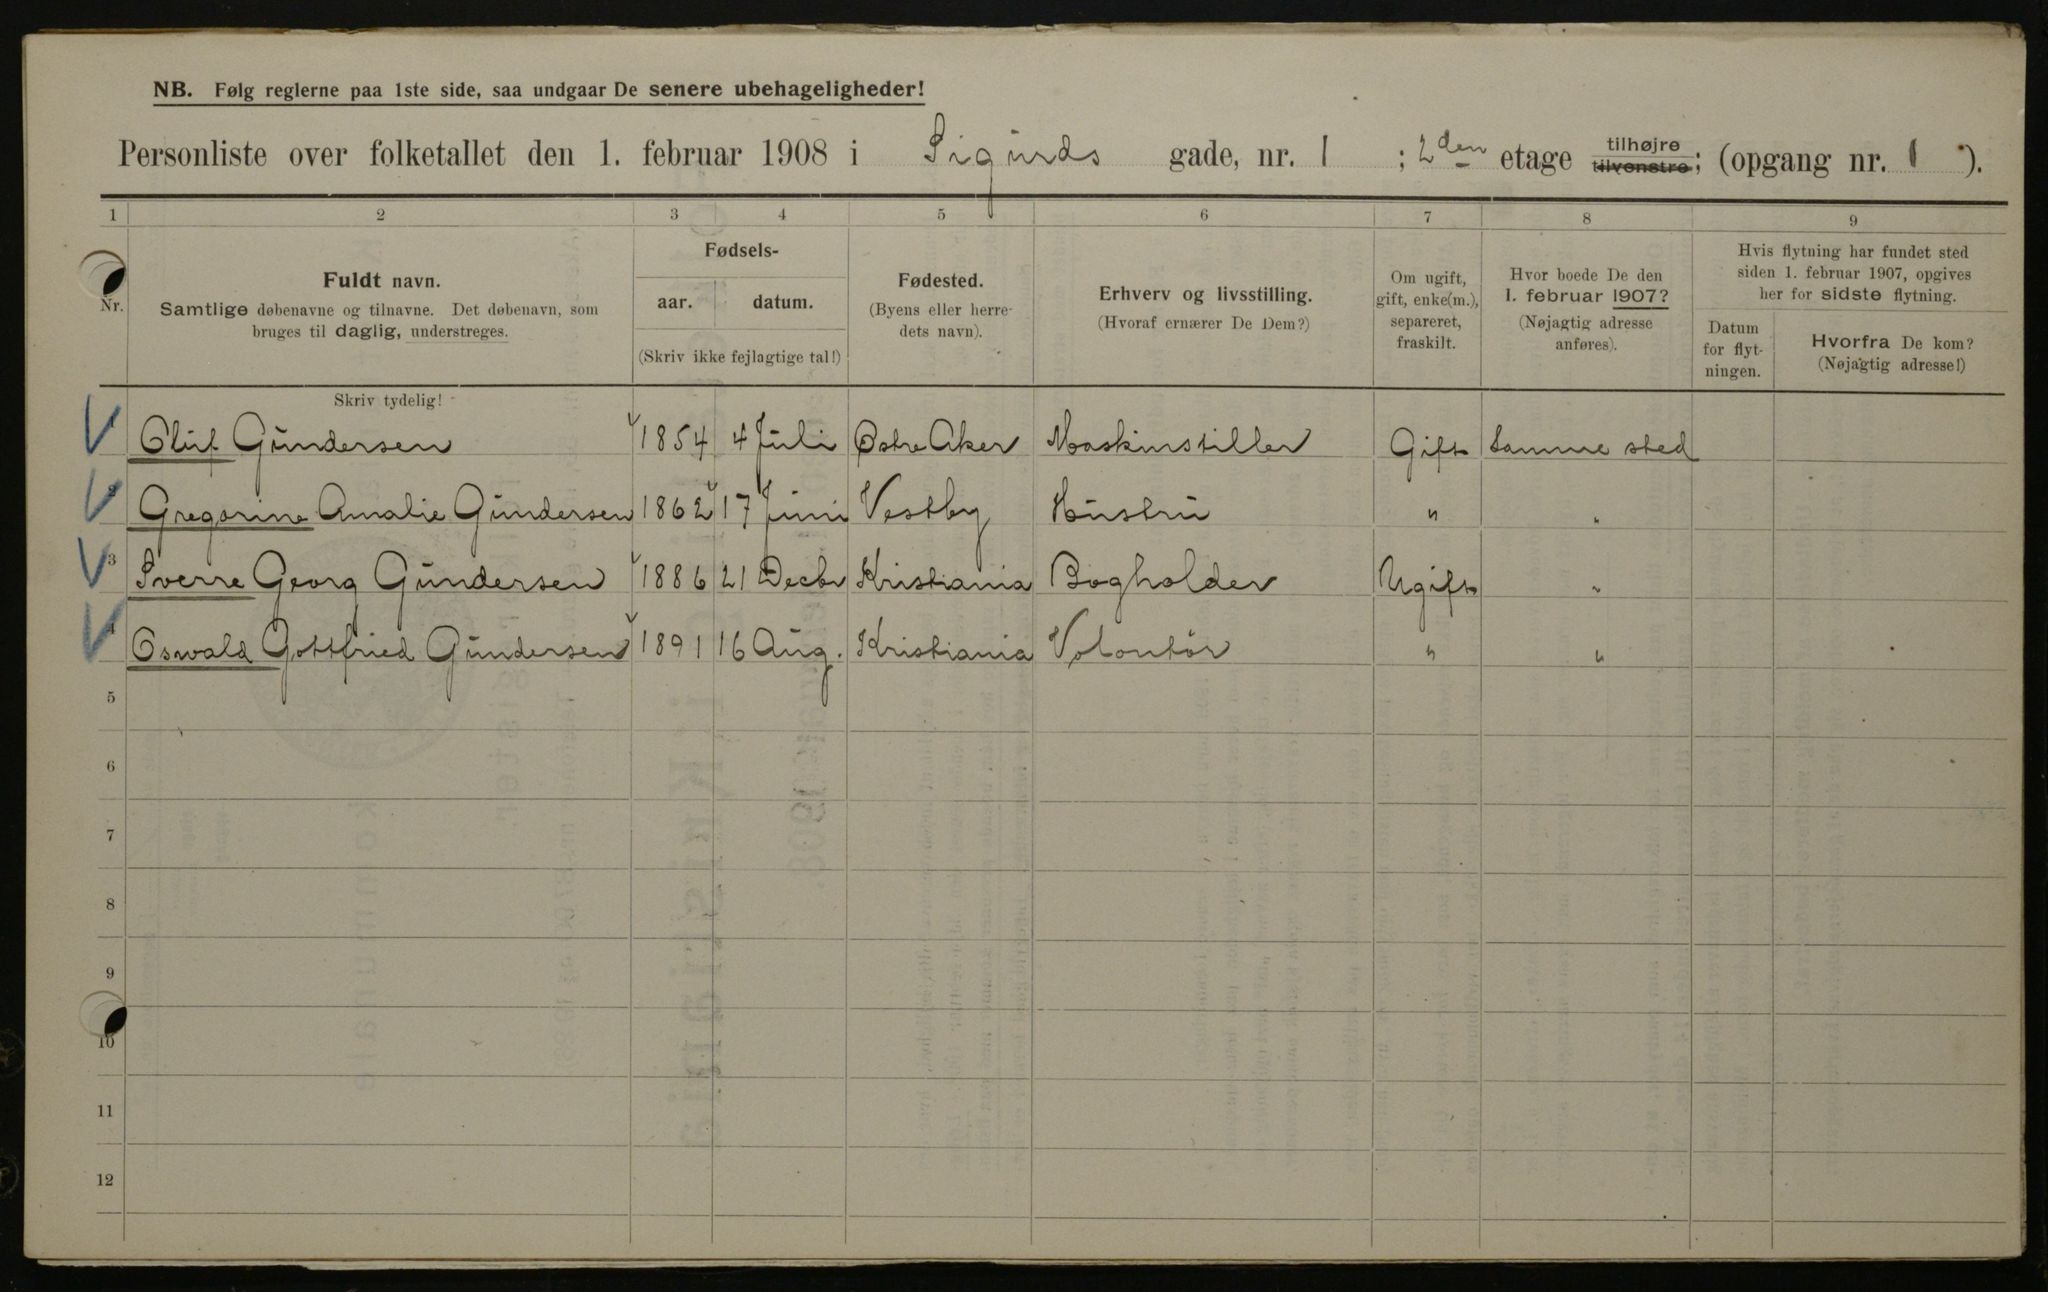 NB. Følg reglerne paa 1ste side, saa undgaar De senere ubehageligheder!
Personliste over folketallet den 1. februar 1908 i Sigurds gade, nr. 1 ; 2den etage tilhøjre tilvenstre; (opgang nr. 1 ).
1 2 3 4 5 6 7 8 9
Nr.
Fuldt navn.
Samtlige døbenavne og tilnavne. Det døbenavn, som
bruges til daglig, understreges.
Fødsels-
aar. datum.
(Skriv ikke fejlagtige tal!)
Fødested.
(Byens eller herre-
dets navn).
Erhverv og livsstilling.
(Hvoraf ernærer De Dem?)
Om ugift,
gift, enke(m.),
separeret,
fraskilt.
Hvor boede De den
1. februar 1907?
(Nøjagtig adresse
anføres).
Hvis flytning har fundet sted
siden 1. februar 1907, opgives
her for sidste flytning.
Datum
for flyt-
ningen.
Hvorfra De kom?
(Nøjagtig adresse!)
Skriv tydelig!
1 Oluf Gundersen 1854 4 Juli Østre Aker Maskinstiller Gift Samme sted
2 Gregorine Amalie Gundersen 1862 17 Juni Vestby Hustru " "
3 Sverre Georg Gundersen 1886 21 Decbr Kristiania Bogholder Ugift "
4 Oswald Gottfried Gundersen 1891 16 Aug. Kristiania Volontør " "
5
6
7
8
9
10
11
12